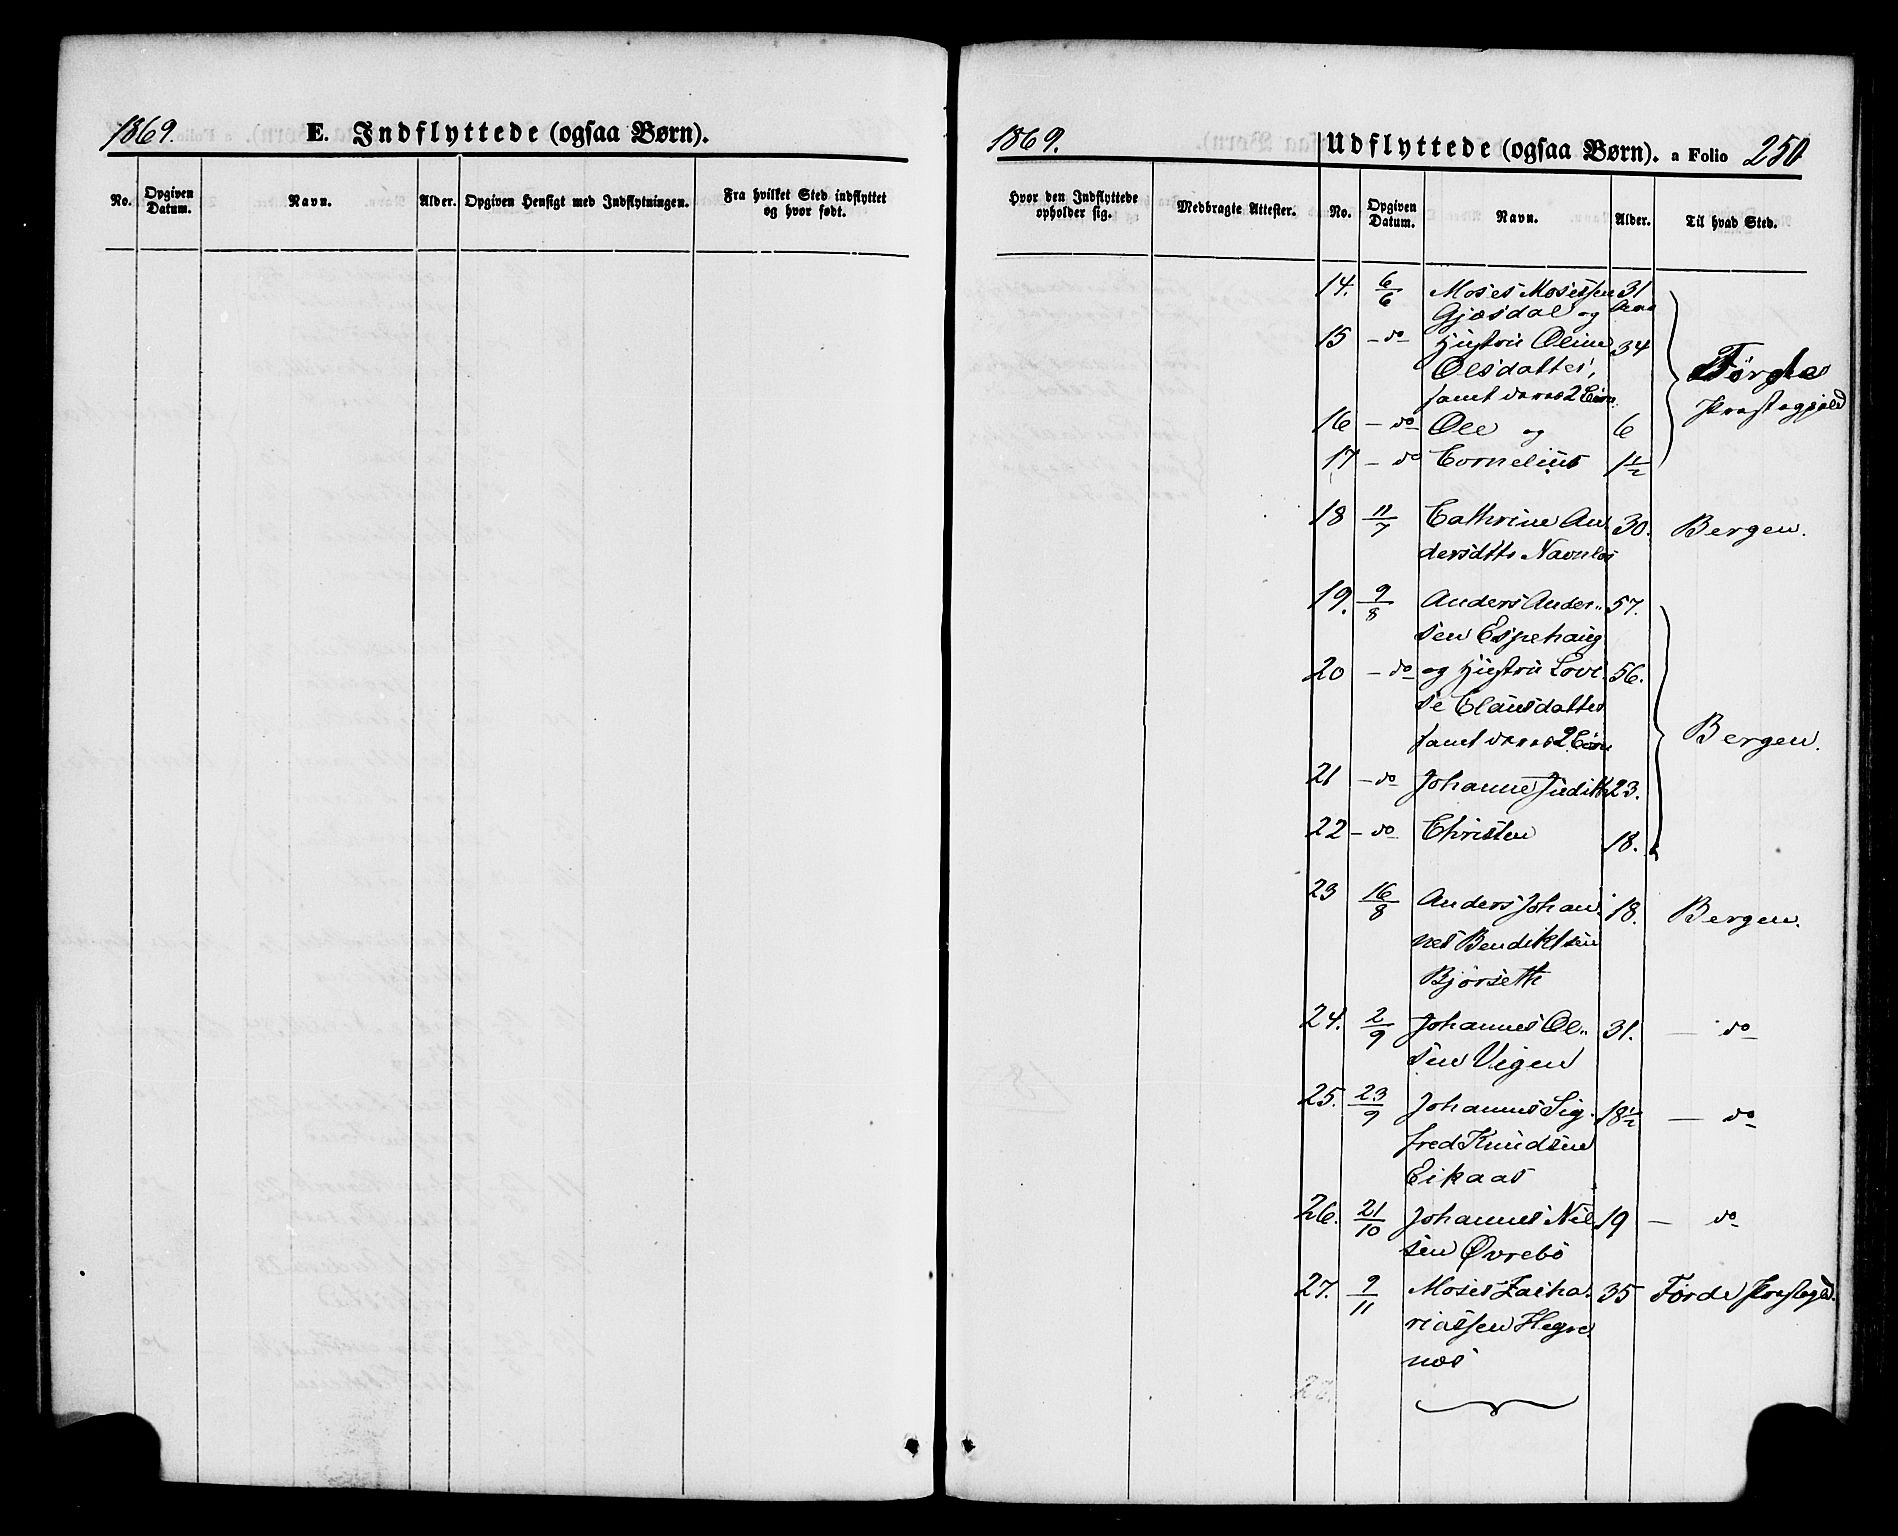 1869. E. Indflyttede (ogsaa Børn).
No. Opgiven Datum. Navn. Alder. Opgiven Hensigt med Indflytningen. Fra hvilket Sted indflyttet og hvor født.
1869. Udflyttede (ogsaa Børn). a Folio 250
Hvor den Indflyttede opholder sig. Medbragte Attester. No. Opgiven Datum. Navn. Alder. Til hvad Sted.
14. 6/6 Moses Mosessen 31
Gjæsdal og Aar
15 - do Hustru Oline 34
Olsdatter, Førde
samt deres 2 Børn Præstegjeld
16 - do Ole og 6
17 - do Cornelius 1 1/2
18 11/7 Cathrine An 30. Bergen.
dersdttr Navnløs
19. 9/8 Anders Ander- 57.
sen Espehaug
20 - do og Hustru Lovi 56.
se Clausdatter
samt deres 2 Børn Bergen.
21 - do Johanne Judith 23.
22 - do Christen 18.
23 16/8 Anders Johan 18. Bergen.
nes Bendiktsen
Bjørseth
24. 2/9 Johannes Ol- 31. - do
sen Vigen
25. 23/9 Johannes Sig 18 1/2 - do
fred Knudsen
Eikaas
26. 21/10 Johannes Nil 19 - do
sen Øvrebø
27. 9/11 Moses Zacha 35 Førde Præstegjld.
riassen Hegre
næs